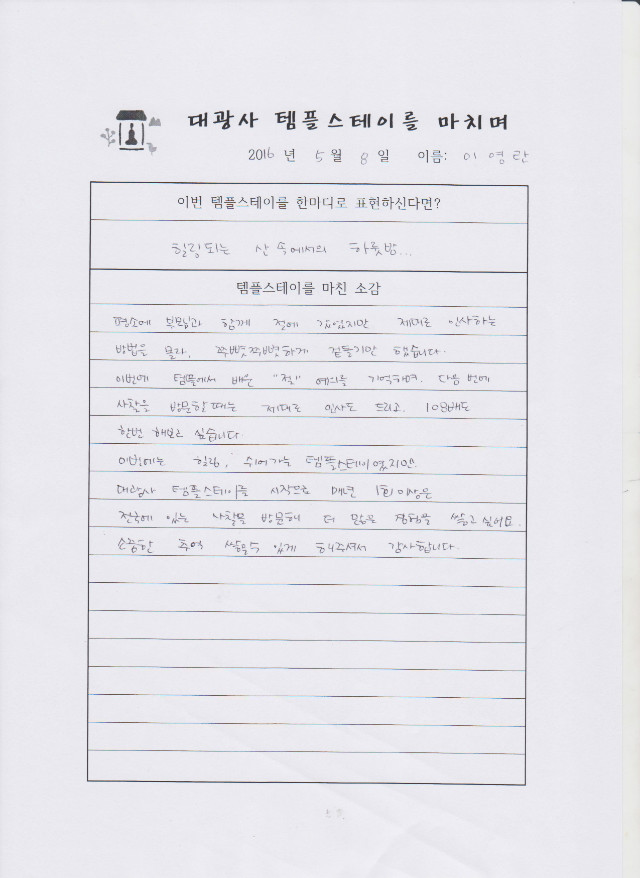 대광사 템플스테이를 마치며
2016 년 5 월 8 일 이름: 이영란
이번 템플스테이를 한마디로 표현하신다면?
힐링되는 산 속에서의 하룻밤...
템플스테이를 마친 소감
평소에 부모님과 함께 절에 갔었지만 제대로 인사하는
방법을 몰라, 쭈뼛쭈뼛하게 겉돌기만 했습니다.
이번에 템플에서 배운 "절" 예의를 기억하며, 다음 번에
사찰을 방문할 때는 제대로 인사도 드리고, 108배도
한번 해보고 싶습니다.
이번에는 힐링, 쉬어가는 템플스테이였지만
대광사 템플스테이를 시작으로 매년 1회 이상은
전국에 있는 사찰을 방문해 더 많은 경험을 쌓고 싶어요.
소중한 추억 쌓을 수 있게 해주셔서 감사합니다.